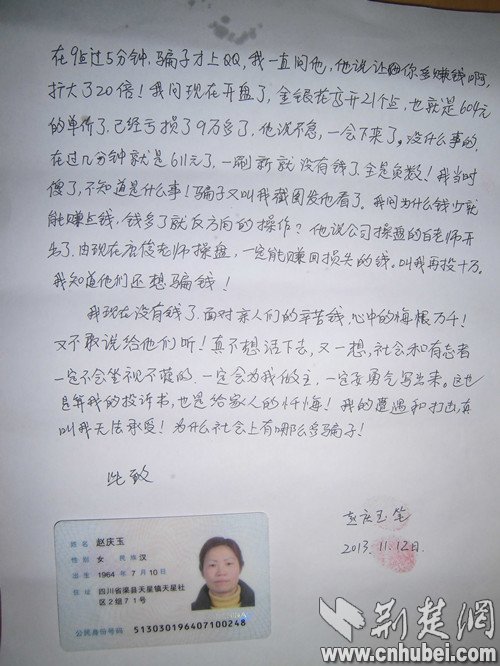 在9点过5分钟,骗子才上QQ,我一直问他,他说让因你多赚钱啊,
扩大了20倍！我问现在开盘了,金银花高开21个点,也就是604元
的单价了.已经亏损了9万多了,他说不急,一会下来了。没什么事的,
在过几分钟就是611元了,一刷新就没有钱了.全是负数！我当时
傻了,不知道是什么事！骗子又叫我截图发他看了。我问为什么钱少就
能赚点钱,钱多了就反方向的操作？他说公司操盘的白老师开
出了.由现在唐俊老师操盘,一定能赚回损失的钱。叫我再投十万.
我知道他们还想骗钱！
我现在没有钱了.面对亲人们的辛苦钱,心中的悔恨万千！
又不敢说给他们听！真不想活下去,又一想,社会和有志者
一定不会坐视不管的.一定会为我做主,一定要勇气写出来。这也
是我的投诉书,也是给家人的忏悔！我的遭遇和打击,真
叫我无法承受！为什么社会上有哪么多骗子！
此致
赵庆玉笔
2013.11.12日.
姓名 赵庆玉
性别 女 民族 汉
出生 1964 年 7 月 10 日
住址 四川省渠县天星镇天星社
区2组71号
公民身份号码 513030196407100248
荆楚网
www.cnhubei.com